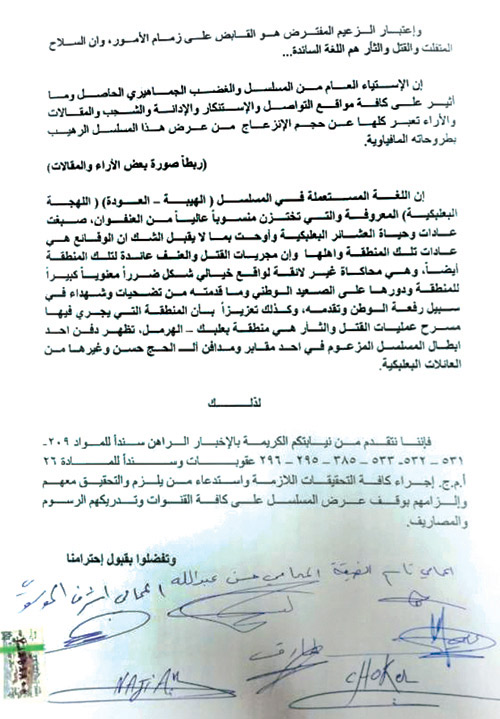 وإعتبار الزعيم المفترض هو القابض على زمام الأمور، وان السلاح
المتفلت والقتل والثأر هم اللغة السائدة...
إن الإستياء العام من المسلسل والغضب الجماهيري الحاصل وما
أثير على كافة مواقع التواصل والإستنكار والإدانة والشجب والمقالات
والأراء تعبر كلها عن حجم الإنزعاج من عرض هذا المسلسل الرهيب
بطروحاته المافياوية.
(ربطاً صورة بعض الأراء والمقالات)
إن اللغة المستعملة في المسلسل ( الهيبة – العودة) ( اللهجة
البعلبكية) المعروفة والتي تختزن منسوباً عالياً من العنفوان، صبغت
عادات وحياة العشائر البعلبكية وأوحت بما لا يقبل الشك ان الوقائع هي
عادات تلك المنطقة واهلها وإن مجريات القتل والعنف عائدة لتلك المنطقة
أيضاً، وهي محاكاة غير لائقة لواقع خيالي شكل ضرراً معنوياً كبيراً
للمنطقة ودورها على الصعيد الوطني وما قدمته من تضحيات وشهداء في
سبيل رفعة الوطن وتقدمه، وكذلك تعزيزاً بأن المنطقة التي يجري فيها
مسرح عمليات القتل والثأر هي منطقة بعلبك – الهرمل، تظهر دفن احد
ابطال المسلسل المزعوم في احد مقابر ومدافن آل الحج حسن وغيرها من
العائلات البعلبكية.
لذلك
فإننا نتقدم من نيابتكم الكريمة بالإخبار الراهن سنداً للمواد ٢٠٩-
٥٣١ – ٥٣٢- ٥٣٣ – ٣٨٥ – ٢٩٥ – ٢٩٦ عقوبات وسنداً للمادة ٢٦
أ.م.ج. إجراء كافة التحقيقات اللازمة واستدعاء من يلزم والتحقيق معهم
وإلزامهم بوقف عرض المسلسل على كافة القنوات وتدريكهم الرسوم
والمصاريف.
وتفضلوا بقبول إحترامنا
المحامي المحامي حسن عبدالله المحامي اشرف الموسوي
طارق
CHOKER
NAJIAN